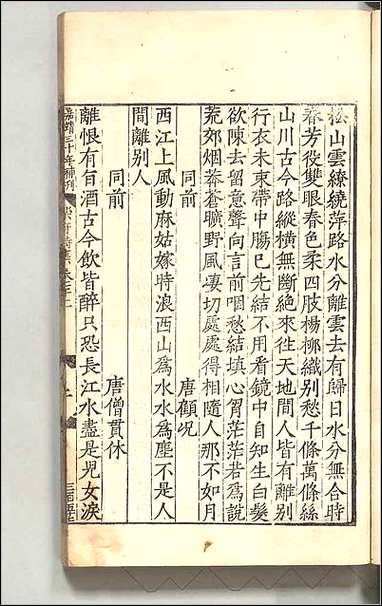 松山雲繚繞萍路水分離雲去有歸日水分無合時
春芳役雙眼春色柔四肢楊柳織別愁千條萬條絲
山川古今路縱橫無斷絶來往天地間人皆有離別
行衣未束帶中腸已先結不用看鏡中自知生白髮
欲陳去留意聲向言前咽愁結填心胷茫茫若爲說
荒郊烟莽蒼曠野風凄切處處得相隨人那不如月
同前 唐顧况
西江上風動麻姑嫁時浪西山爲水水爲塵不是人
間離別人
同前 唐僧貫休
離恨有旨酒古今飲皆醉只恐長江水盡是兒女淚
嘉靖三十年補刊